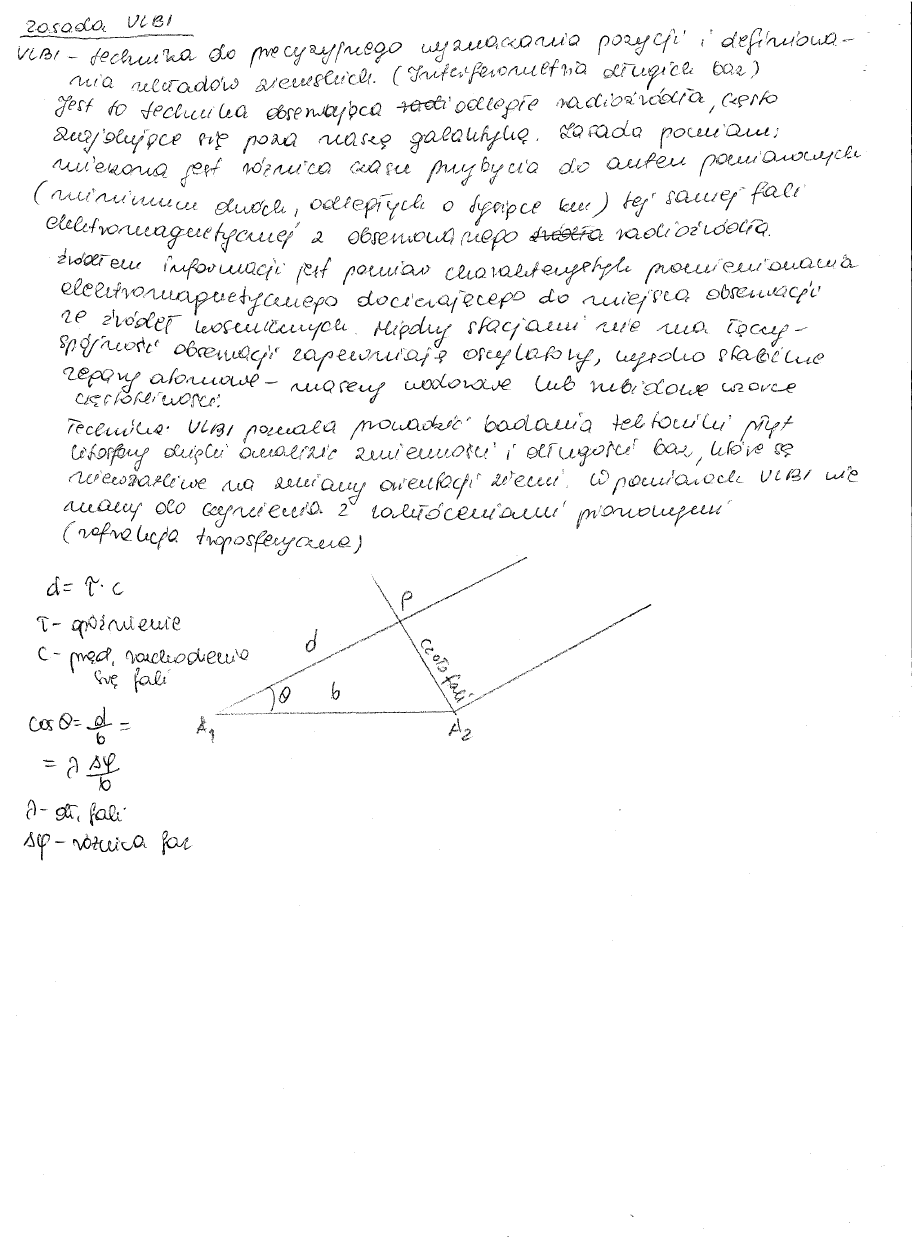 Zasada VLBI
VLBI - technika do precyzyjnego wyznaczania pozycji i definiowa-
nia układów ziemskich. (Interferometria długich baz)
Jest to technika obserwująca radi odległe radioźródła, często
znajdujące się poza naszą galaktyką. Zasada pomiaru:
mierzona jest różnica czasu przybycia do anten pomiarowych
(minimum dwóch, odległych o tysiące km) tej samej fali
elektromagnetycznej z obserwowanego źródła radioźródła.
Źródłem informacji jest pomiar charakterystyk promieniowania
elektromagnetycznego docierającego do miejsca obserwacji
ze źródeł kosmicznych. Między stacjami nie ma łączy -
spójność obserwacji zapewniają oscylatory, wysoko stabilne
zegary atomowe - masery wodorowe lub rubidowe wzorce
częstotliwości.
Technika VLBI pozwala prowadzić badania tektoniki płyt
litosfery dzięki analizie zmienności i długości baz, które są
niewrażliwe na zmiany orientacji ziemi. W pomiarach VLBI nie
mamy do czynienia z zakłóceniami pionowymi
(refrakcja troposferyczna)
d = τ · c
τ - opóźnienie
c - pręd. rozchodzenia
się fali
cos θ = d/b =
= λ Δφ/b
λ - dł. fali
Δφ - różnica faz
P
d
czoło fali
θ
b
A₁
A₂